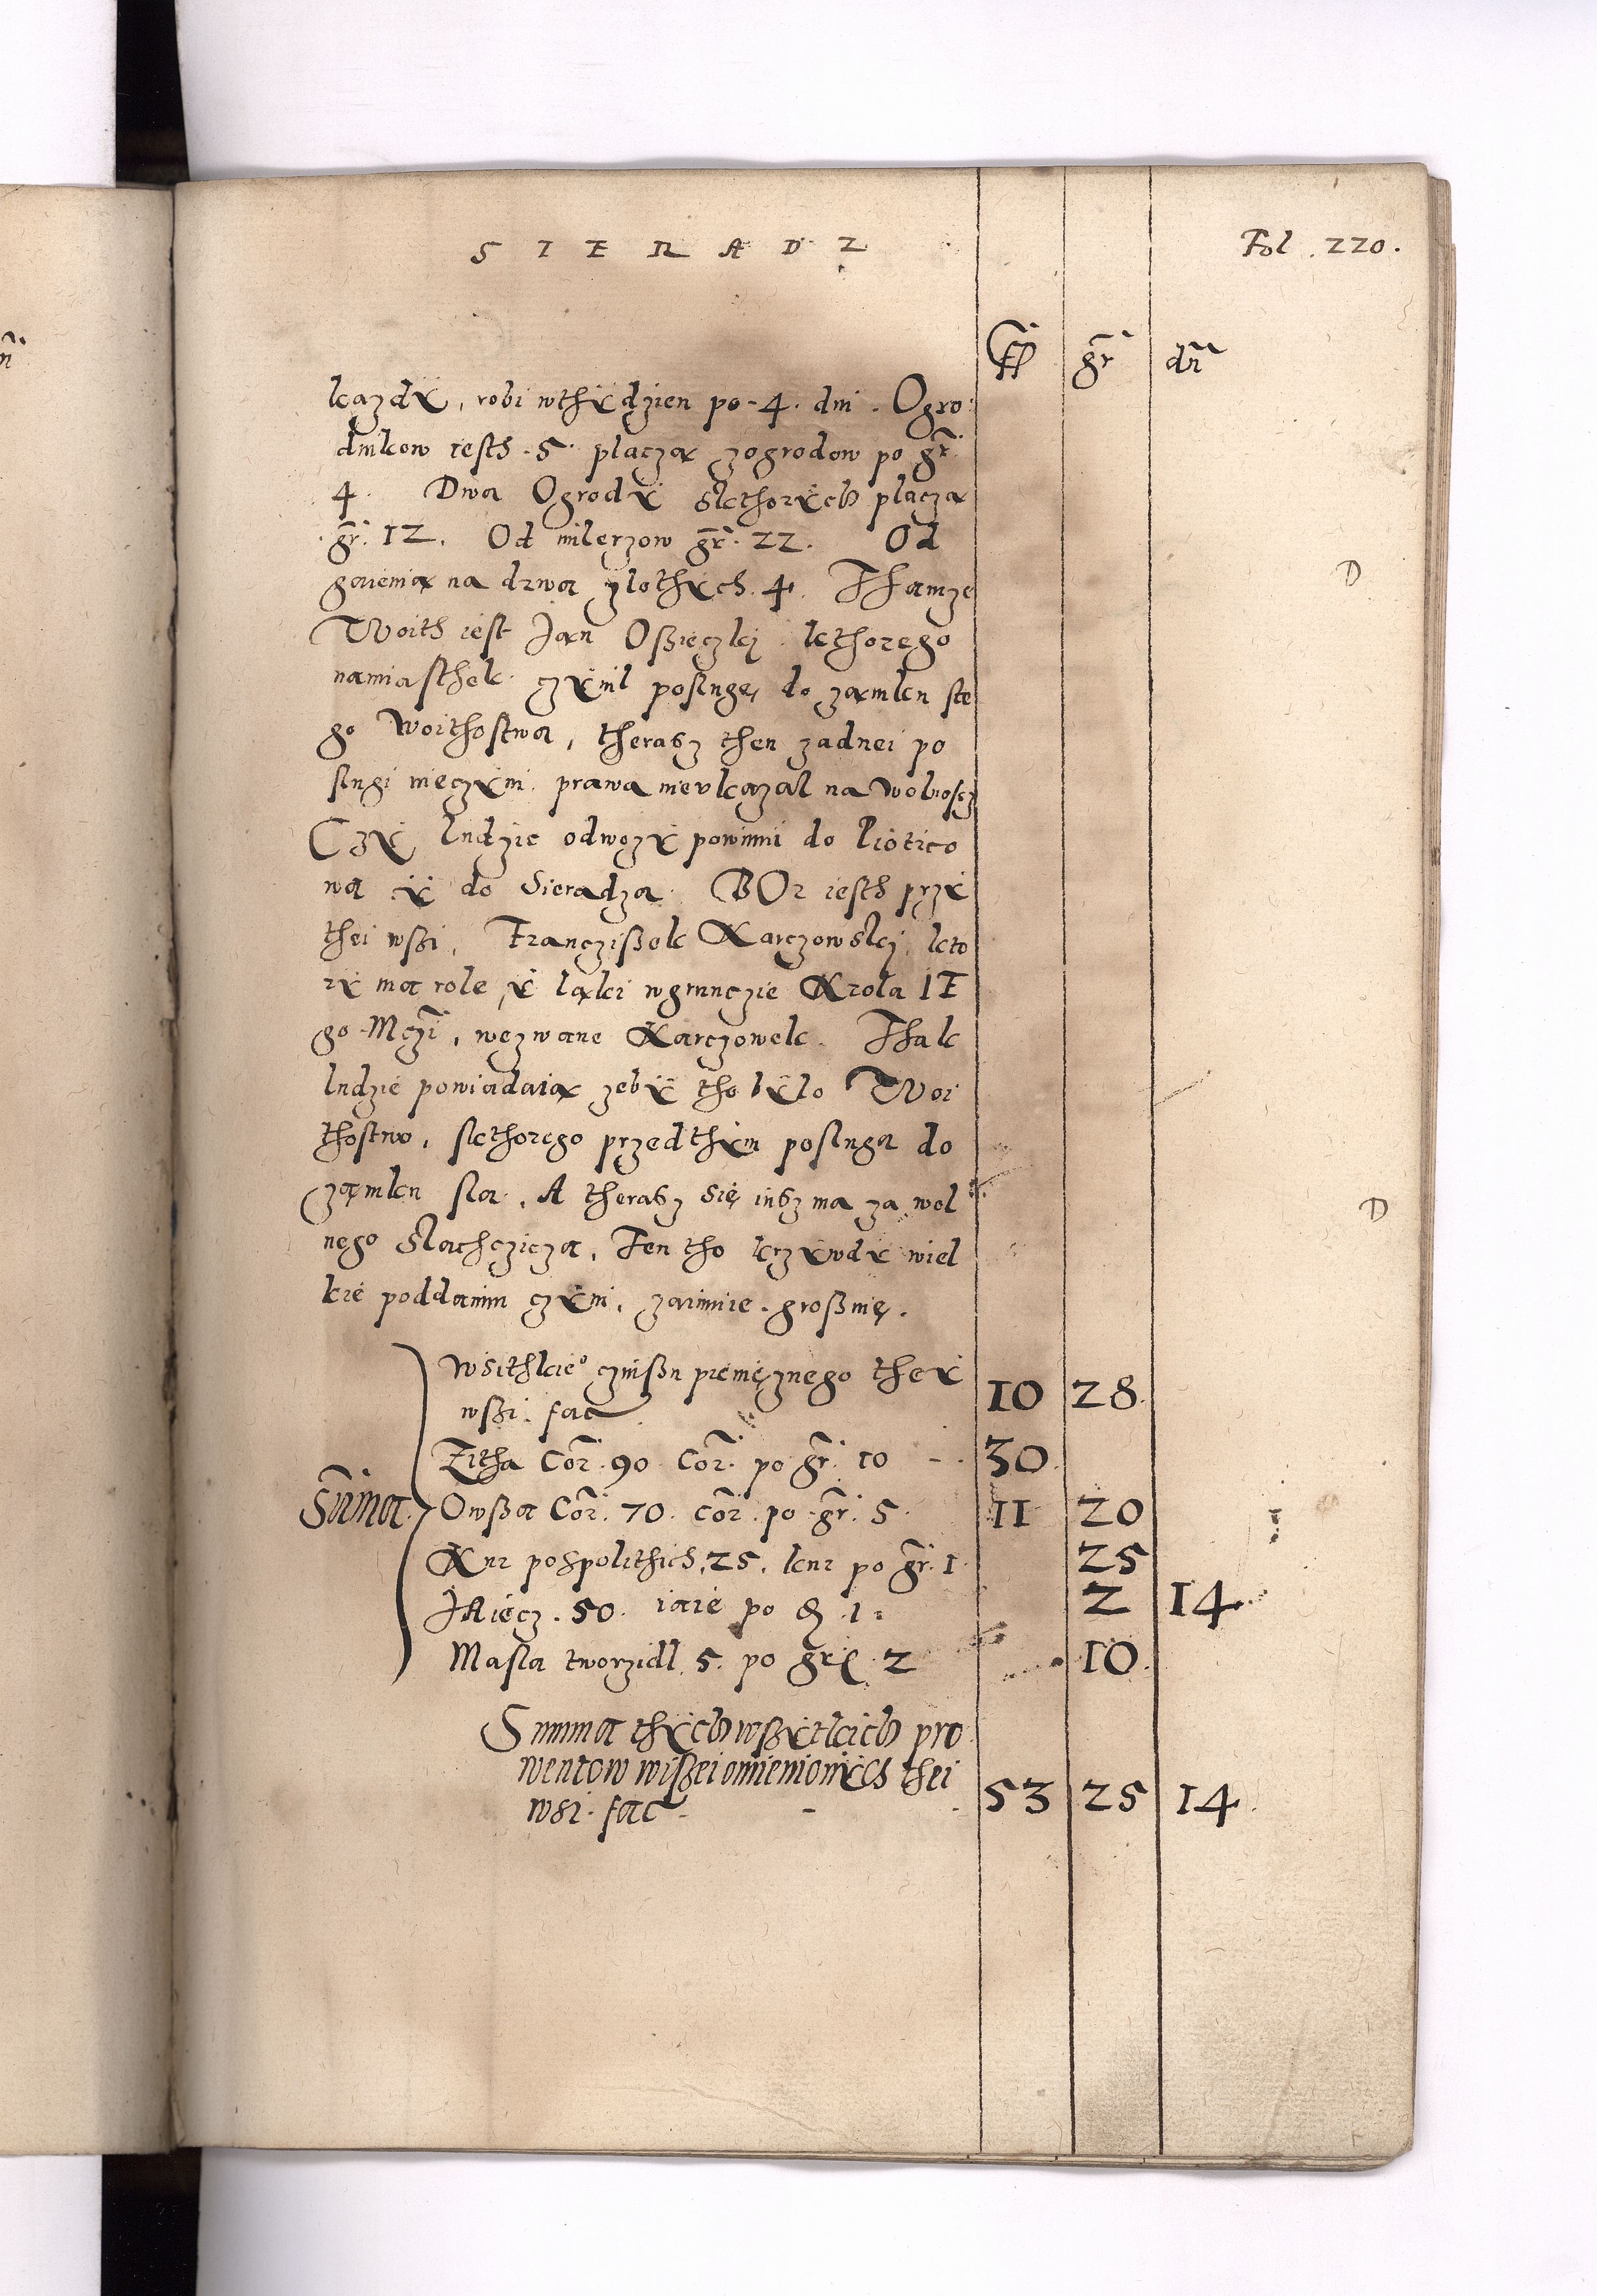 SIERADZ Fol. 220.
fl gr dn
kazdÿ, robi wthÿdzien po 4. dni. Ogro
dnikow iesth. 5. placzą zogrodow po gr.
4. Dwa Ogrodÿ skthorÿch placzą
gr. 12. Od milerzow gr. 22. Od
gaienią na drwa zlothÿch. 4. Thamze D
Woith iest Jan Oßieczki kthorego
namiasthek czÿnil poslugę, do zamku ste
go Woithostwa, therasz then zadnei po
slugi nieczÿni. prawa nievkazal na wolnoscz
Czÿ ludzie odwozÿ powinni do Piotrco
wa ÿ do Sieradza. BOr iesth przÿ
thei wßi. Franczißek Karczowskj, kto
rÿ ma role, ÿląki wgrunczie Krola IE
go Mczi, wezwane Karczowek. Thak
ludzie powiadaią zebÿ tho bÿlo Woi
thostwo, skthorego przedthÿm posluga do
zamku sla. A therasz się iusz ma za wol D
nego Slachczicza, Ten tho krzÿwdÿ wiel
kie poddanim czÿni, zaimuie. großnię.
Wsithkie° czinßu pienięznego theÿ
wßi. fac 10 28
Zitha Cor. 90 Cor. po gr. 10 30
Suma Owßa Cor. 70. cor. po gr. 5. 11 20
Kur pospolithich. 25. kur po gr. 1 25
JAiecz. 50. iaie po d. 1. 2 14
Masla tworzidl. 5. po gr. 2 10
Summa thÿch wßÿtkich pro
wentow wißei omienionÿch thei
wsi. fac 53 25 14